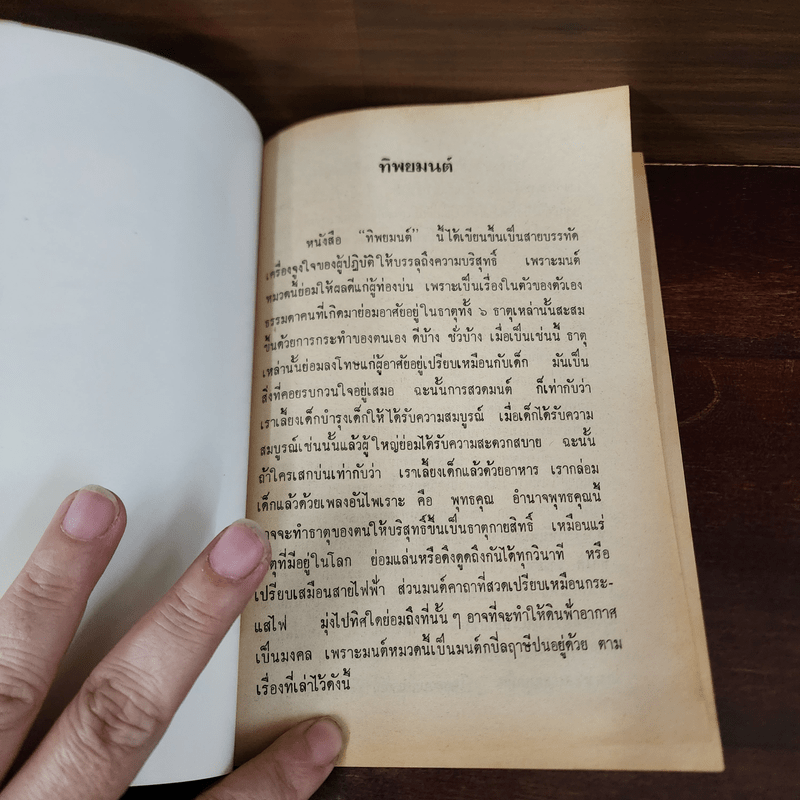 ทิพยมนต์
หนังสือ “ทิพยมนต์” นี้ได้เขียนขึ้นเป็นสายบรรทัด
เครื่องจูงใจของผู้ปฏิบัติให้บรรลุถึงความบริสุทธิ์ เพราะมนต์
หมวดนี้ย่อมให้ผลดีแก่ผู้ท่องบ่น เพราะเป็นเรื่องในตัวของตัวเอง
ธรรมดาคนที่เกิดมาย่อมอาศัยอยู่ในธาตุทั้ง ๖ ธาตุเหล่านั้นสะสม
ขึ้นด้วยการกระทำของตนเอง ดีบ้าง ชั่วบ้าง เมื่อเป็นเช่นนี้ ธาตุ
เหล่านั้นย่อมลงโทษแก่ผู้อาศัยอยู่เปรียบเหมือนกับเด็ก มันเป็น
สิ่งที่คอยรบกวนใจอยู่เสมอ ฉะนั้นการสวดมนต์ ก็เท่ากับว่า
เราเลี้ยงเด็กบำรุงเด็กให้ได้รับความสมบูรณ์ เมื่อเด็กได้รับความ
สมบูรณ์เช่นนั้นแล้วผู้ใหญ่ย่อมได้รับความสะดวกสบาย ฉะนั้น
ถ้าใครเสกบ่นเท่ากับว่า เราเลี้ยงเด็กแล้วด้วยอาหาร เรากล่อม
เด็กแล้วด้วยเพลงอันไพเราะ คือ พุทธคุณ อำนาจพุทธคุณนี้
อาจจะทำธาตุของตนให้บริสุทธิ์ขึ้นเป็นธาตุกายสิทธิ์ เหมือนแร่
ธาตุที่มีอยู่ในโลก ย่อมแล่นหรือดึงดูดถึงกันได้ทุกวินาที หรือ
เปรียบเสมือนสายไฟฟ้า ส่วนมนต์คาถาที่สวดเปรียบเหมือนกระ-
แสไฟ มุ่งไปทิศใดย่อมถึงที่นั้น ๆ อาจที่จะทำให้ดินฟ้าอากาศ
เป็นมงคล เพราะมนต์หมวดนี้เป็นมนต์กบิลฤาษีปนอยู่ด้วย ตาม
เรื่องที่เล่าไว้ดังนี้